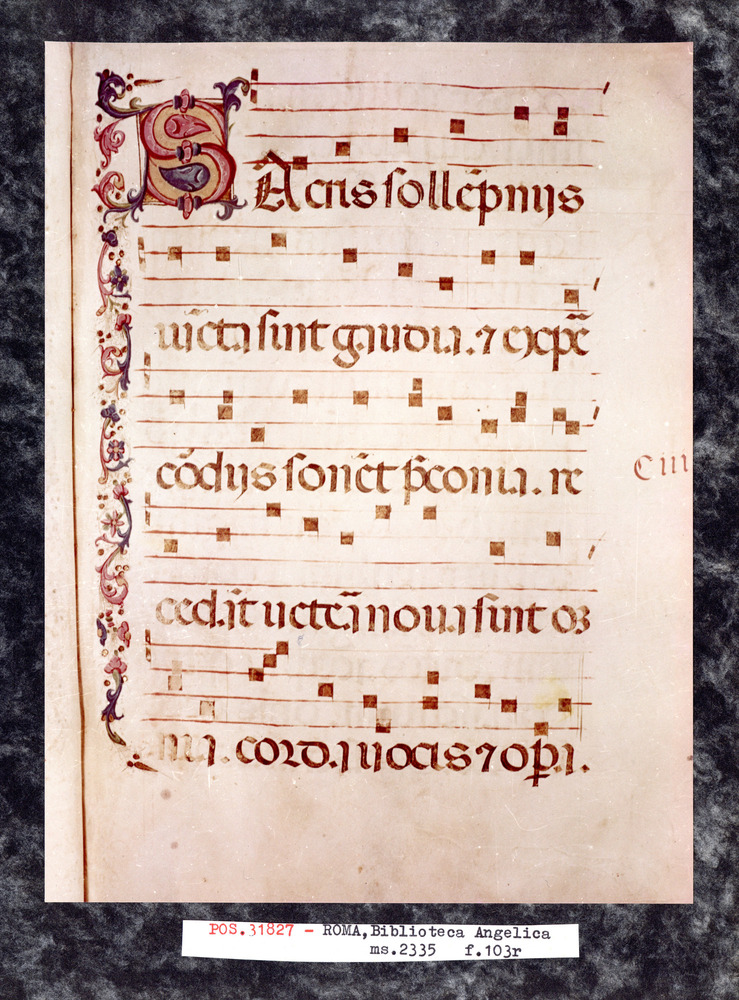 SAcris sollēpniis
iūcta sint gaudia. ⁊ ex p̄
cōdiis sonēt p̄conia. re
cedāt uetēa noua sint oꝫ
nia. corda uoces ⁊ opa.
Ciii
POS.31827 - ROMA,Biblioteca Angelica
ms.2335 f.103r